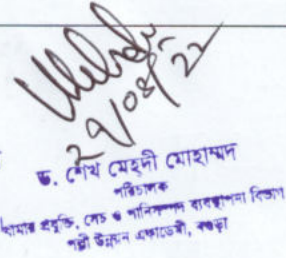 ২৭/০৪/২২
ড. শেখ মেহদী মোহাম্মদ
পরিচালক
খামার প্রযুক্তি, সেচ ও পানিসম্পদ ব্যবস্থাপনা বিভাগ
পল্লী উন্নয়ন একাডেমী, বগুড়া